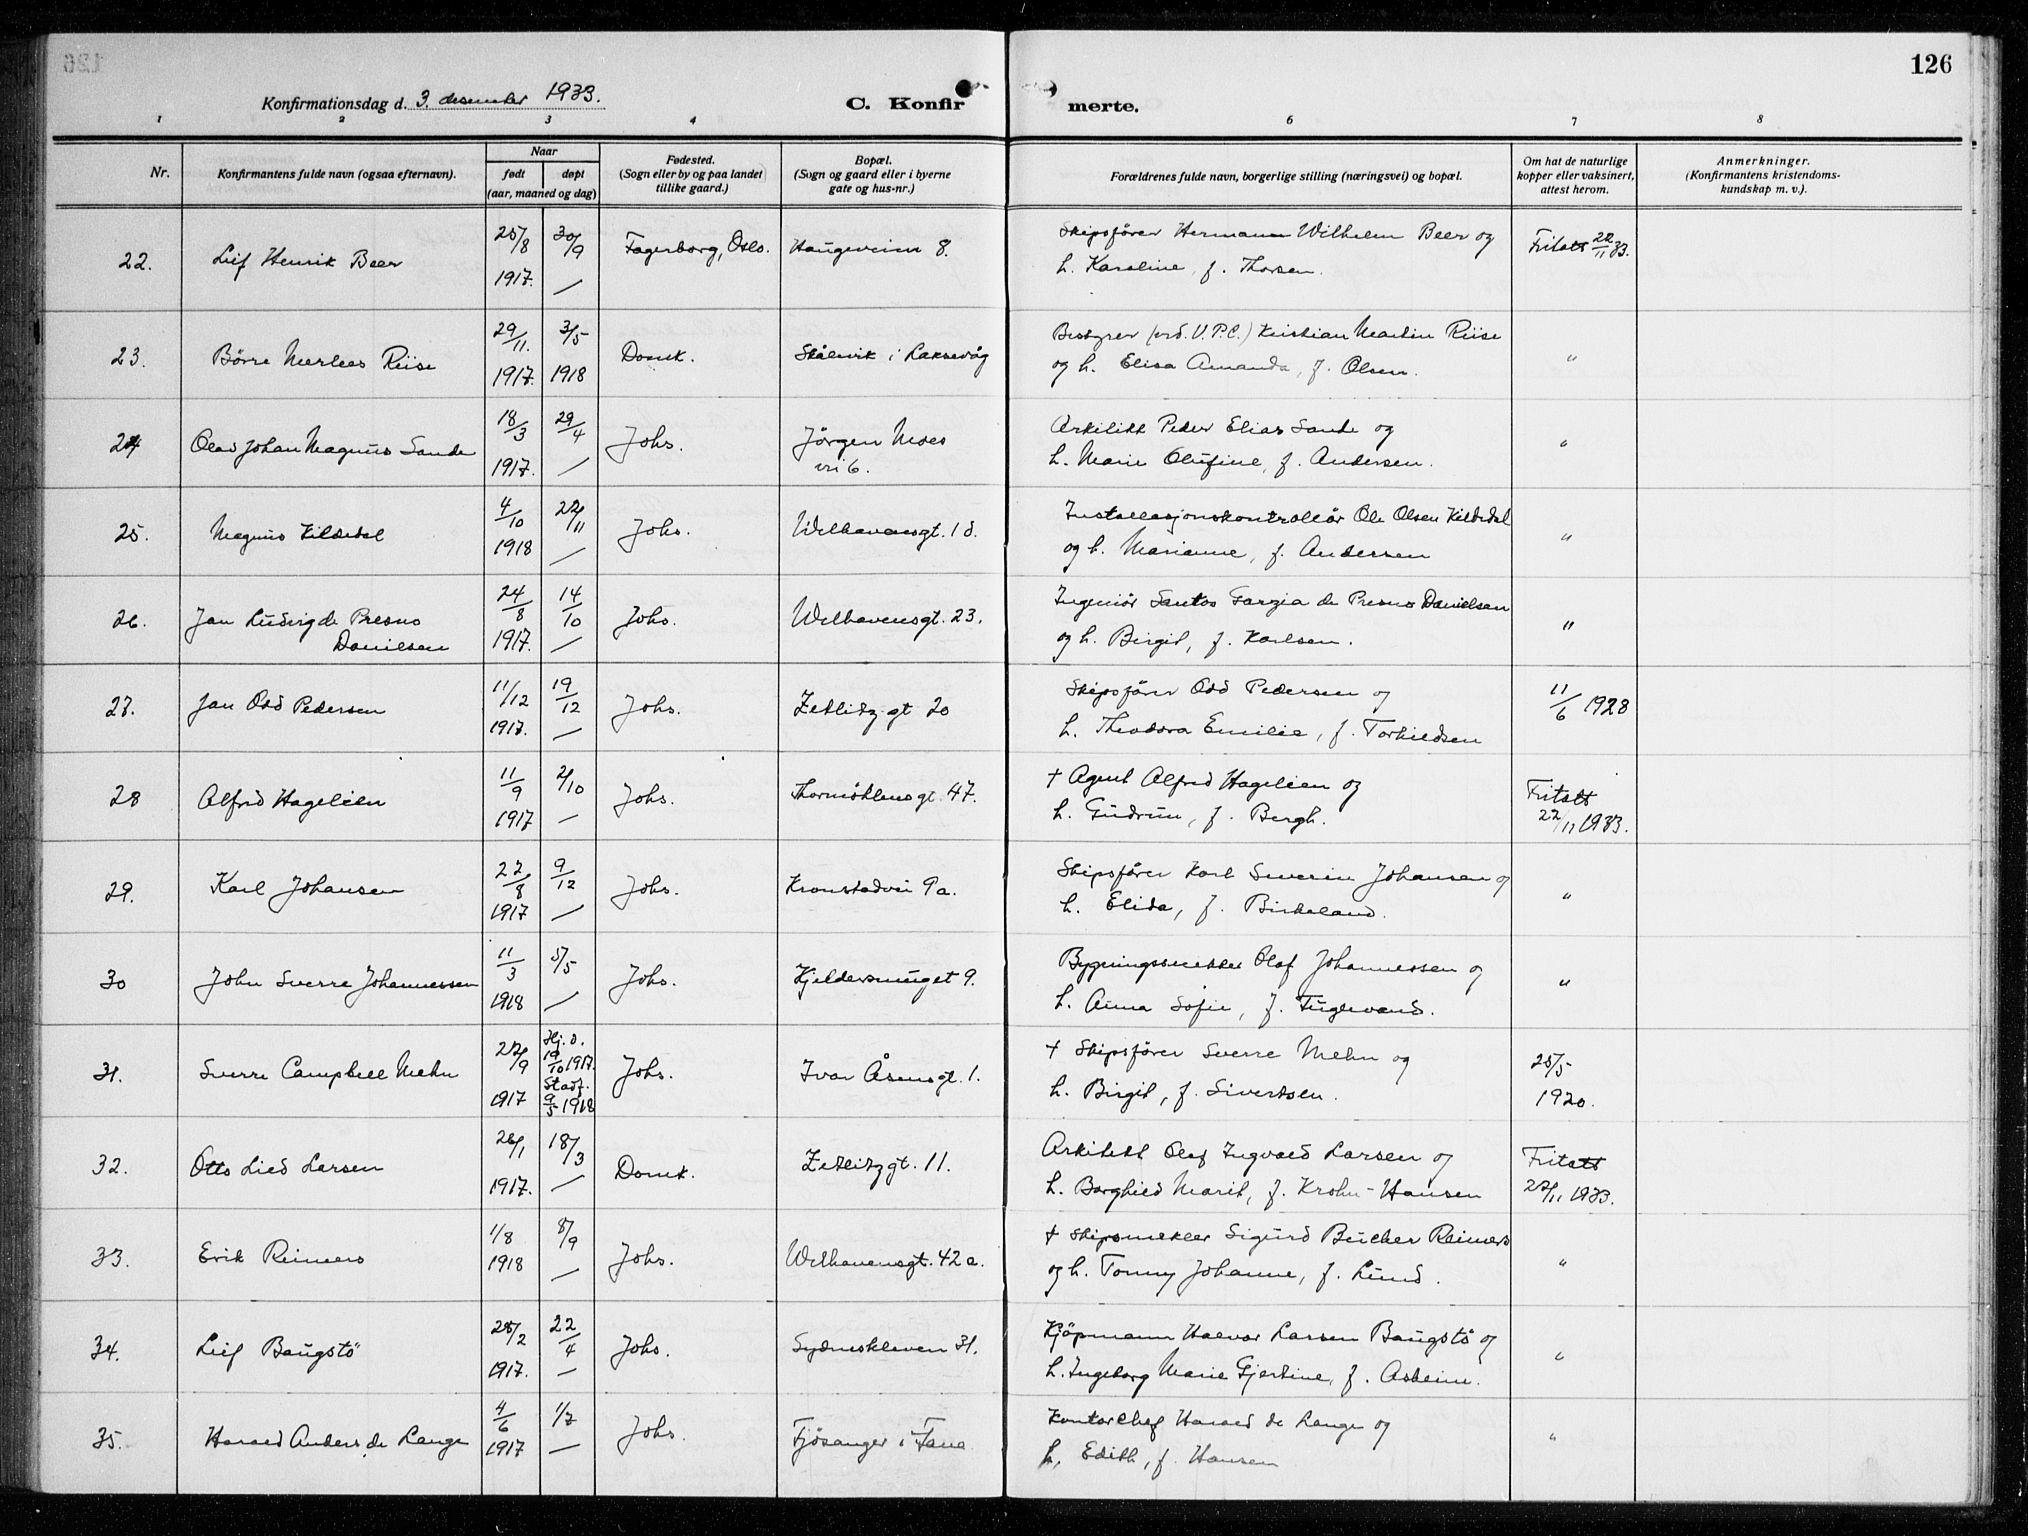 126
Konfirmationsdag d. 3. desember 1933.
C. Konfir merte.
1 2 3 4 6 7 8
Nr.
Konfirmantens fulde navn (ogsaa efternavn).
Naar
født døpt
(aar, maaned og dag)
Fødested.
(Sogn eller by og paa landet
tillike gaard.)
Bopæl.
(Sogn og gaard eller i byerne
gate og hus-nr.)
Forældrenes fulde navn, borgerlige stilling (næringsvei) og bopæl.
Om hat de naturlige
kopper eller vaksinert,
attest herom.
Anmerkninger.
(Konfirmantens kristendoms-
kundskap m. v.).
22. Leif Henrik Beer 25/8 1917. 30/9 — Fagerborg, Oslo. Haugeveien 8.
Skipsfører Hermann Wilhelm Beer og
h. Karoline, f. Thorsen.
Fritatt 22/11 33.
23. Børre Riise 29/11. 1917. 3/5 1918 Domk. Skålevik i Laksevåg
Bestyrer (ved V.P.C.) Kristian Martin Riise
og h. Elisa Amanda, f. Olsen.
"
24 Olav Johan Magnus Sande 18/3 1917. 29/4 — Johs. Jörgen Moes
vei 6.
Arkitekt Peder Elias Sande og
h. Marie Olufine, f. Andersen.
"
25. Magnus Kildedal 4/10 1918 22/11 — Johs. Welhavensgt. 18.
Installasjonskontrollør Ole Olsen Kildedal
og h. Marianne, f. Andersen
"
26. Jan Ludvig de Presno
Danielsen
24/8 1917. 14/10 — Johs. Welhavensgt. 23.
Ingeniør Santos Gargia de Presno Danielsen
og h. Birgit, f. Karlsen.
"
27. Jan Odd Pedersen 11/12 1917. 19/12 — Johs. Zetlitz gt 20
Skipsfører Odd Pedersen og
h. Theodora Emilie, f. Torkildsen
11/6 1928
28 Alfred Hageliien 11/9 1917 2/10 — Johs. Thormøhlensgt. 47.
† Agent Alfred Hageliien og
h. Gudrun, f. Bergh.
Fritatt
22/11 1933.
29. Karl Johansen 22/8 1917 9/12 — Johs. Kronstadvei 9a.
Skipsfører Karl Severin Johansen og
h. Elida, f. Birkeland.
"
30 John Sverre Johannessen 11/3 1918 5/5 — Johs. Kjeldersmuget 9.
Bygningssnekker Olaf Johannessen og
h. Anna Sofie, f. Fuglevand.
"
31. Sverre Campbell Mehn 27/9 1917 Hj. d.
19/10 1917.
Stadf.
9/5 1918
Johs. Ivar Åsensgt. 1.
† Skipsfører Sverre Mehn og
h. Birgit, f. Sivertsen.
25/5
1920.
32. Otto Lied Larsen 26/1 1917. 18/3 — Domk. Zetlitzgt. 11.
Arkitekt Olaf Ingvald Larsen og
h. Borghild Marit, f. Krohn-Hansen
Fritatt
22/11 1933.
33. Erik Reimers 1/8 1918 8/9 — Johs. Welhavensgt. 42 a.
† Skipsmekler Sigurd Bucher Reimers
og h. Tonny Johanne, f. Lund.
"
34. Leif Baugstö 28/2 1917. 22/4 — Johs. Sydneskleven 31.
Kjöpmann Halvor Larsen Baugstö og
h. Ingeborg Marie Gjertine, f. Asheim.
"
35. Harald Anders de Lange 4/6 1917 1/7 — Johs. Fjösanger i Fana
Kontorchef Harald de Lange og
h. Edith, f. Hansen
"